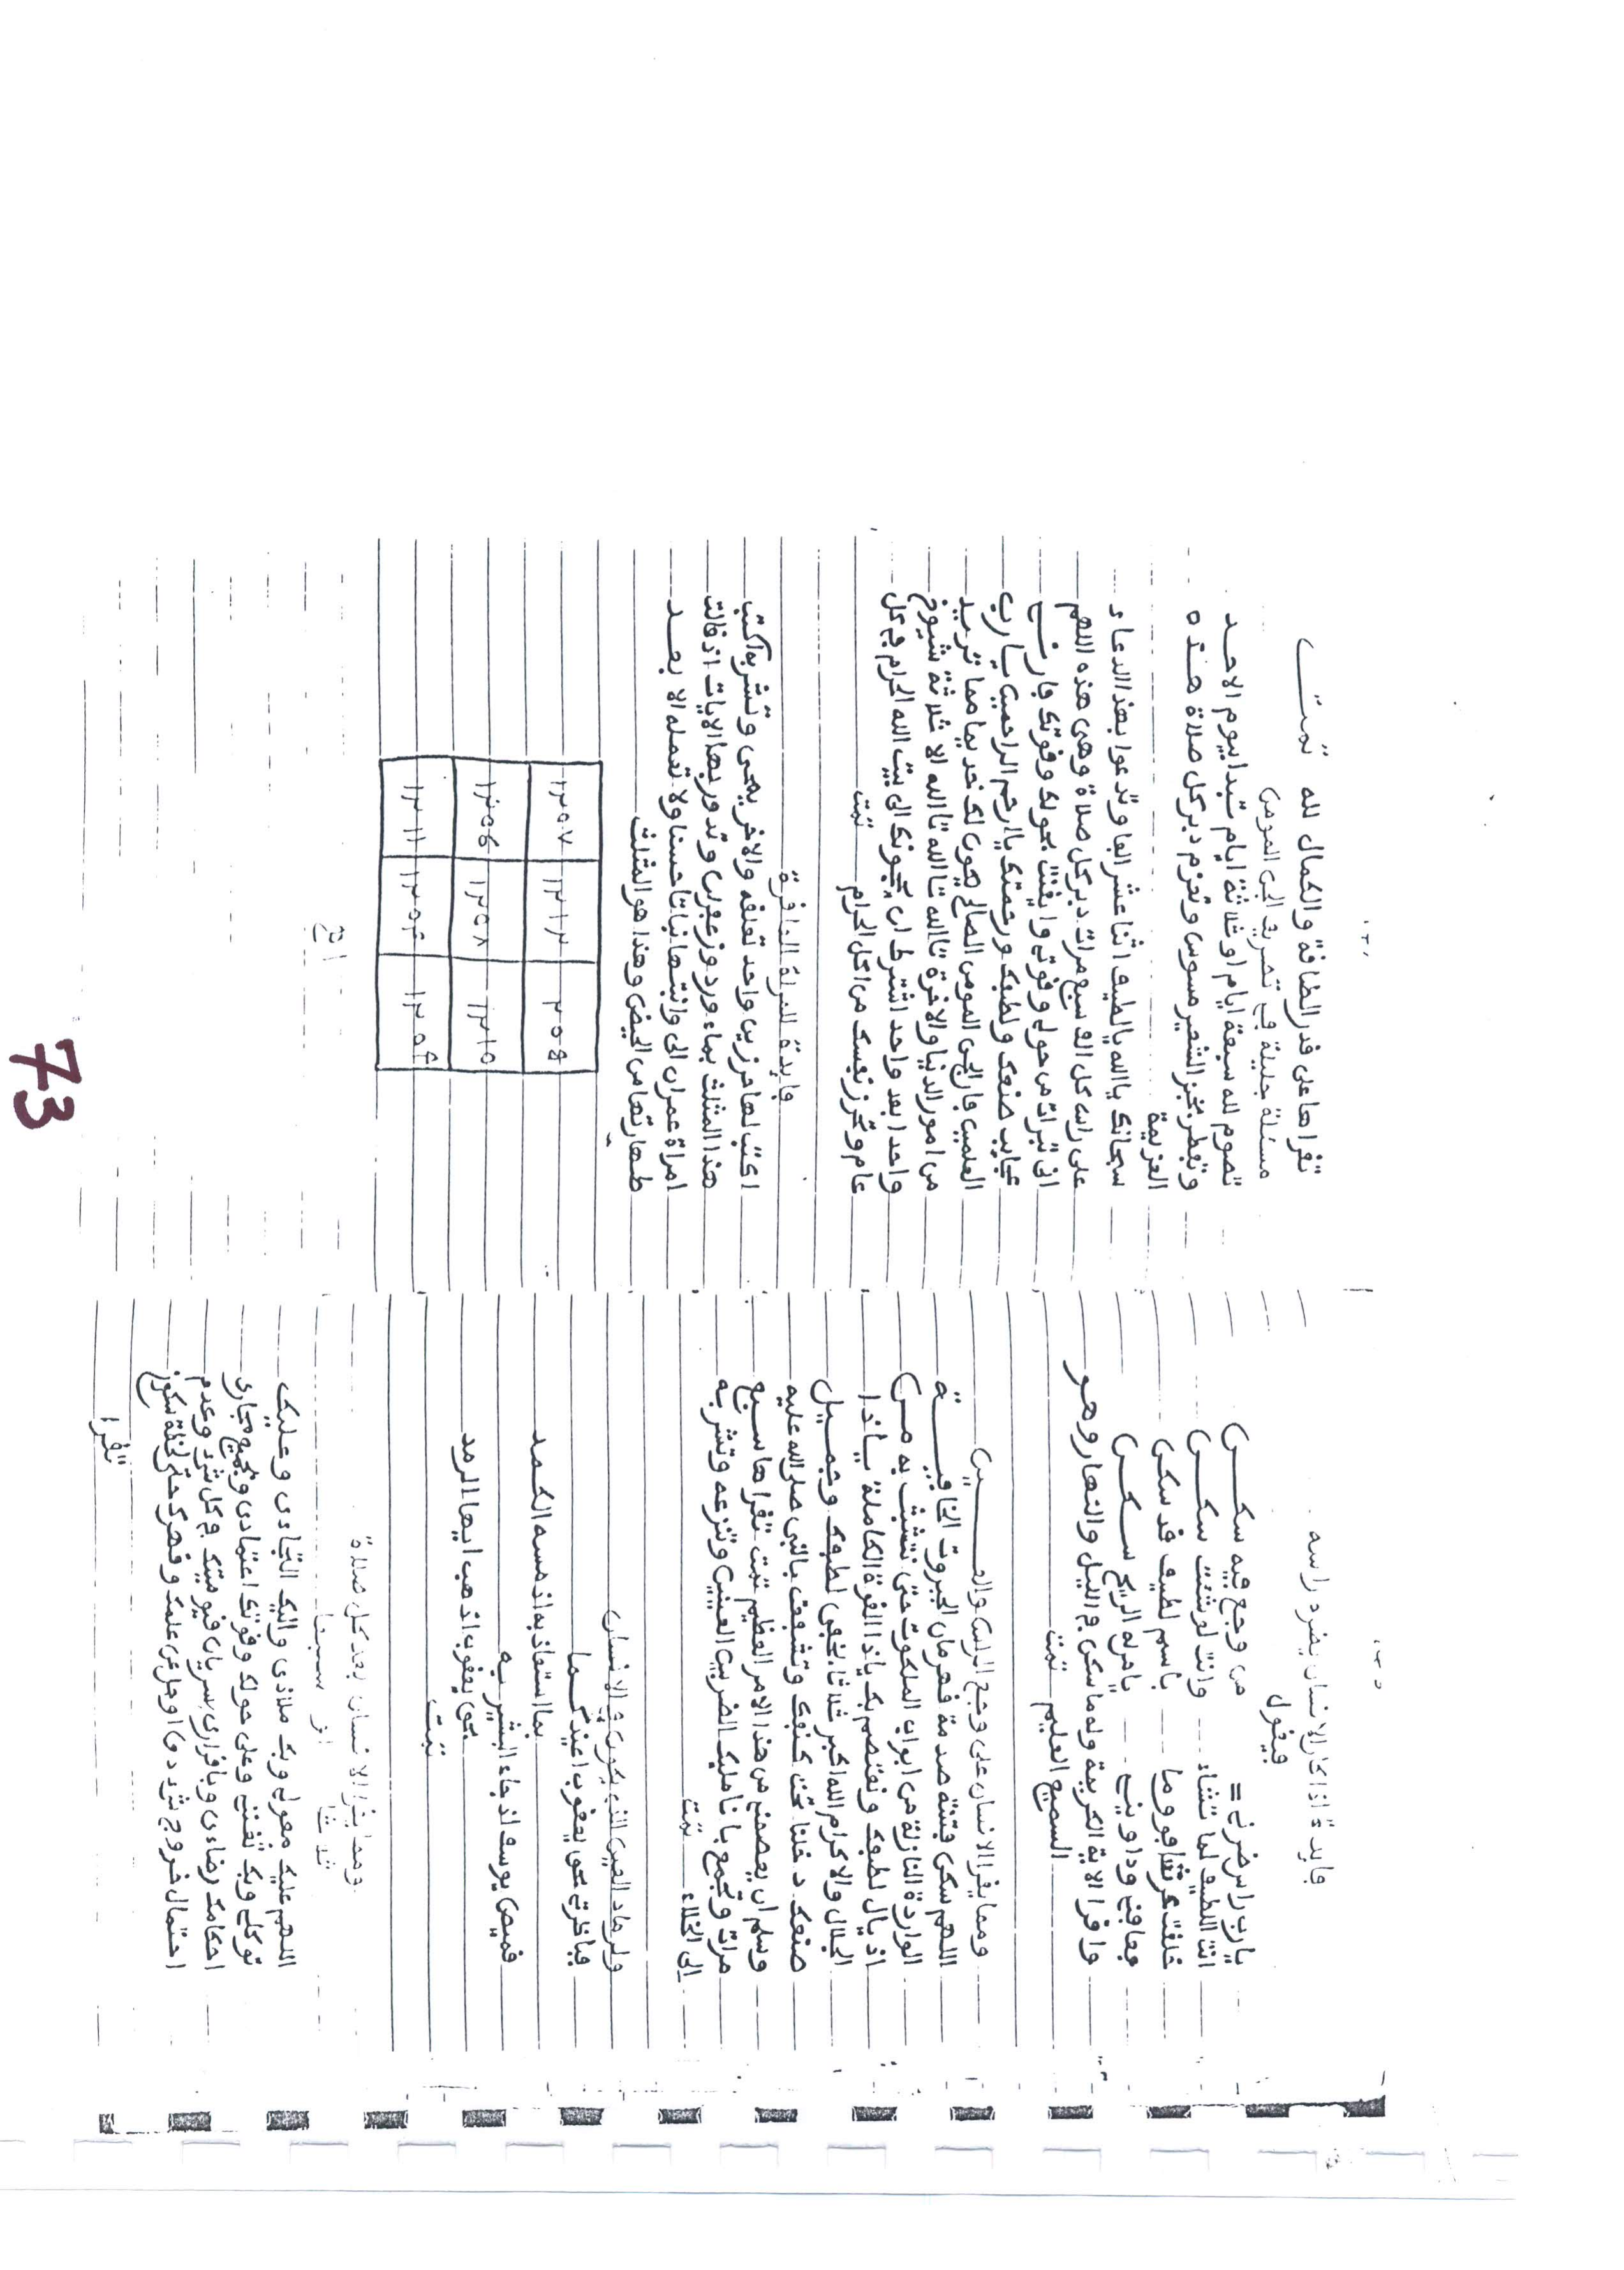 فايدة اذا كان الانسان يضرد راسه
فيقول
يارب راس ضرني = من وجع فيه سكن
انت اللطيف لما تشاء وانت لو شئت سكن
خلقت عرشا فوق ما باسم لطيف قد سكن
فعافني وداويني يامر له الريح سكن
واقرا الاية الكريمة وله ما سكن في الليل والنهار وهو
السميع العليم تمت
ومما يقرا الانسان على وجع الراس والعين
اللهم سكن فتنة صدمة قهرمان الجبروت الخافية
الواردة النازلة من ابواب الملكوت حتى نتشبث به من
اذيال لطفك ونعتصم بك ياذا القوة الكاملة ياذا
الجلال والاكرام الله اكبر ثلاثا بخفي لطفك وجميل
صنعك دخلنا تحت كنفك وتشفعت بالنبي صلى الله عليه
وسلم ان يعصمني من هذا الامر العظيم تمت تقراها سبع
مرات وتجمع يا ناملك الضربين العينين وتنزعه وتشربه
الى الخلاء تمت
ولرماد العين الذي يكون في الانسان
فباظرتي بحق يعقوب اعيذكما
بما استعاذ به اذ مسه الكمد
قميص يوسف اذ جاء البشير به
بحق يعقوب اذهب ايها الرمد
تمت
ومما يقرا الانسان بعد كل صلاة
ثلاثا او سبعا
اللهم عليك معولي وبك ملاذي واليك التجاءي وعليك
توكلي وبك ثقتي وعلى حولك وقوتك اعتمادي وبجميع مجاري
احكامك رضاءي وباقراري بسريان قيوميتك في كل شيء وعدم
احتمال خروج شيء دق او جل عن علمك وقهرك حتى لحظة سكون
تقرا
تقراها على قدر الطاقة والكمال لله تمت
مسئلة جليلة في تصريف الجن المومن
تصوم لله سبعة ايام او ثلاثة ايام تبدا بيوم الاحد
وتفطر بخبز الشعير مسوس وتعزم دبر كل صلاة هذه
العزيمة
سبحانك يا الله يا لطيف اثنا عشر الفا وتدعوا بهذا الدعاء
على راس كل الف سبع مرات دبر كل صلاة وهي هذه اللهم
اني تبرات من حولي وقوتي وايقنت بحولك وقوتك فارني
عجايب صنعك ولطفك ورحمتك يا ارحم الراحمين يا رب
العلمين فان الجن المومن الصالح يكون لك خديما مما تريد
من امور الدنيا والاخرة تا الله تا الله تا الله الا ثلاثة شيوخ
واحدا بعد واحد اشترط ان يحجونك الى بيت الله الحرام في كل
عام وتحرز نفسك من اكل الحرام تمت
فايدة للمراة العاقرة
اكتب لها حرزين واحد تعلقه والاخر يمحى وتشربه اكتب
هذا المثلث بماء ورد وزعفران وتدور بها الايات اذ قالت
امراة عمران الى وانبتها نباتا حسنا ولا تعمله الا بعد
طهارتها من الحيض وهذا هو المثلث